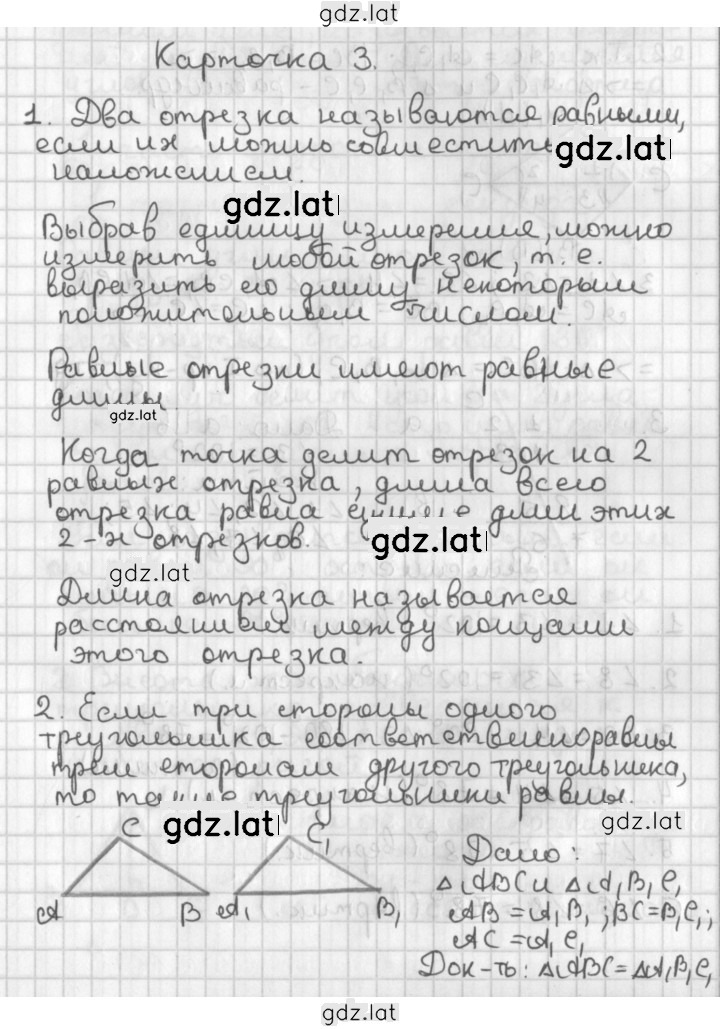 gdz.lat
Карточка 3.
1. Два отрезка называются равными,
если их можно совместить
gdz.lat
наложением.
gdz.lat
Выбрав единицу измерения, можно
измерить любой отрезок, т. е.
выразить его длину некоторым
положительным числом.
Равные отрезки имеют равные
длины
gdz.lat
Когда точка делит отрезок на 2
равных отрезка, длина всего
отрезка равна сумме длин этих
2-х отрезков.
gdz.lat
gdz.lat
Длина отрезка называется
расстоянием между концами
этого отрезка.
2. Если три стороны одного
треугольника соответственно равны
трем сторонам другого треугольника,
то такие треугольники равны.
gdz.lat
gdz.lat
C
C₁
A
B
A₁
B₁
Дано:
△ABC и △A₁B₁C₁
AB = A₁B₁; BC = B₁C₁;
AC = A₁C₁
Док-ть: △ABC = △A₁B₁C₁
gdz.lat